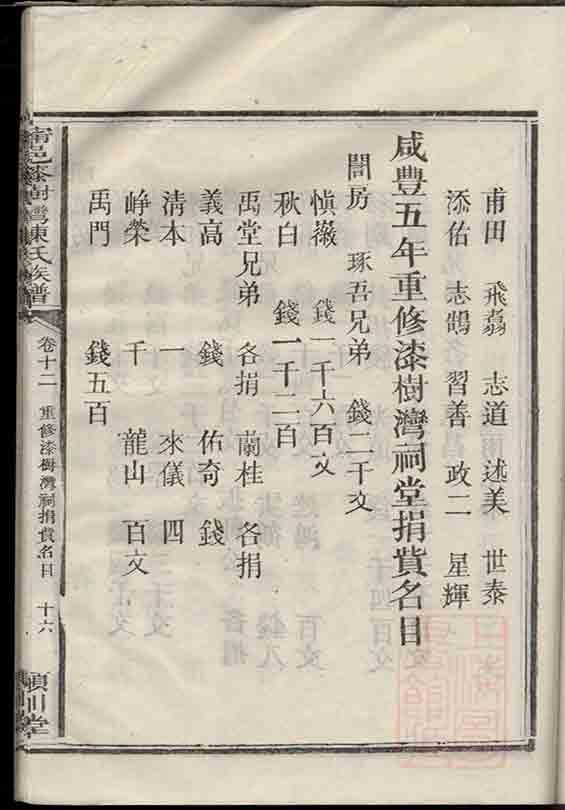 甫田 飛翥 志道 述美 世泰
添佑 志鵠 習善 政二 星輝
咸豐五年重修漆樹灣祠堂捐貲名目
誾房 琢吾兄弟 錢二千文
慎徽 錢一千六百文
秋白 錢一千二百
禹堂兄弟 各捐 蘭桂 各捐
義高 錢 佑奇 錢
清本 一 來儀 四
崢榮 千 龍山 百文
禹門 錢五百
甯邑漆樹灣陳氏族譜
卷十二 重修漆樹灣祠捐貲名目 十六
潁川堂